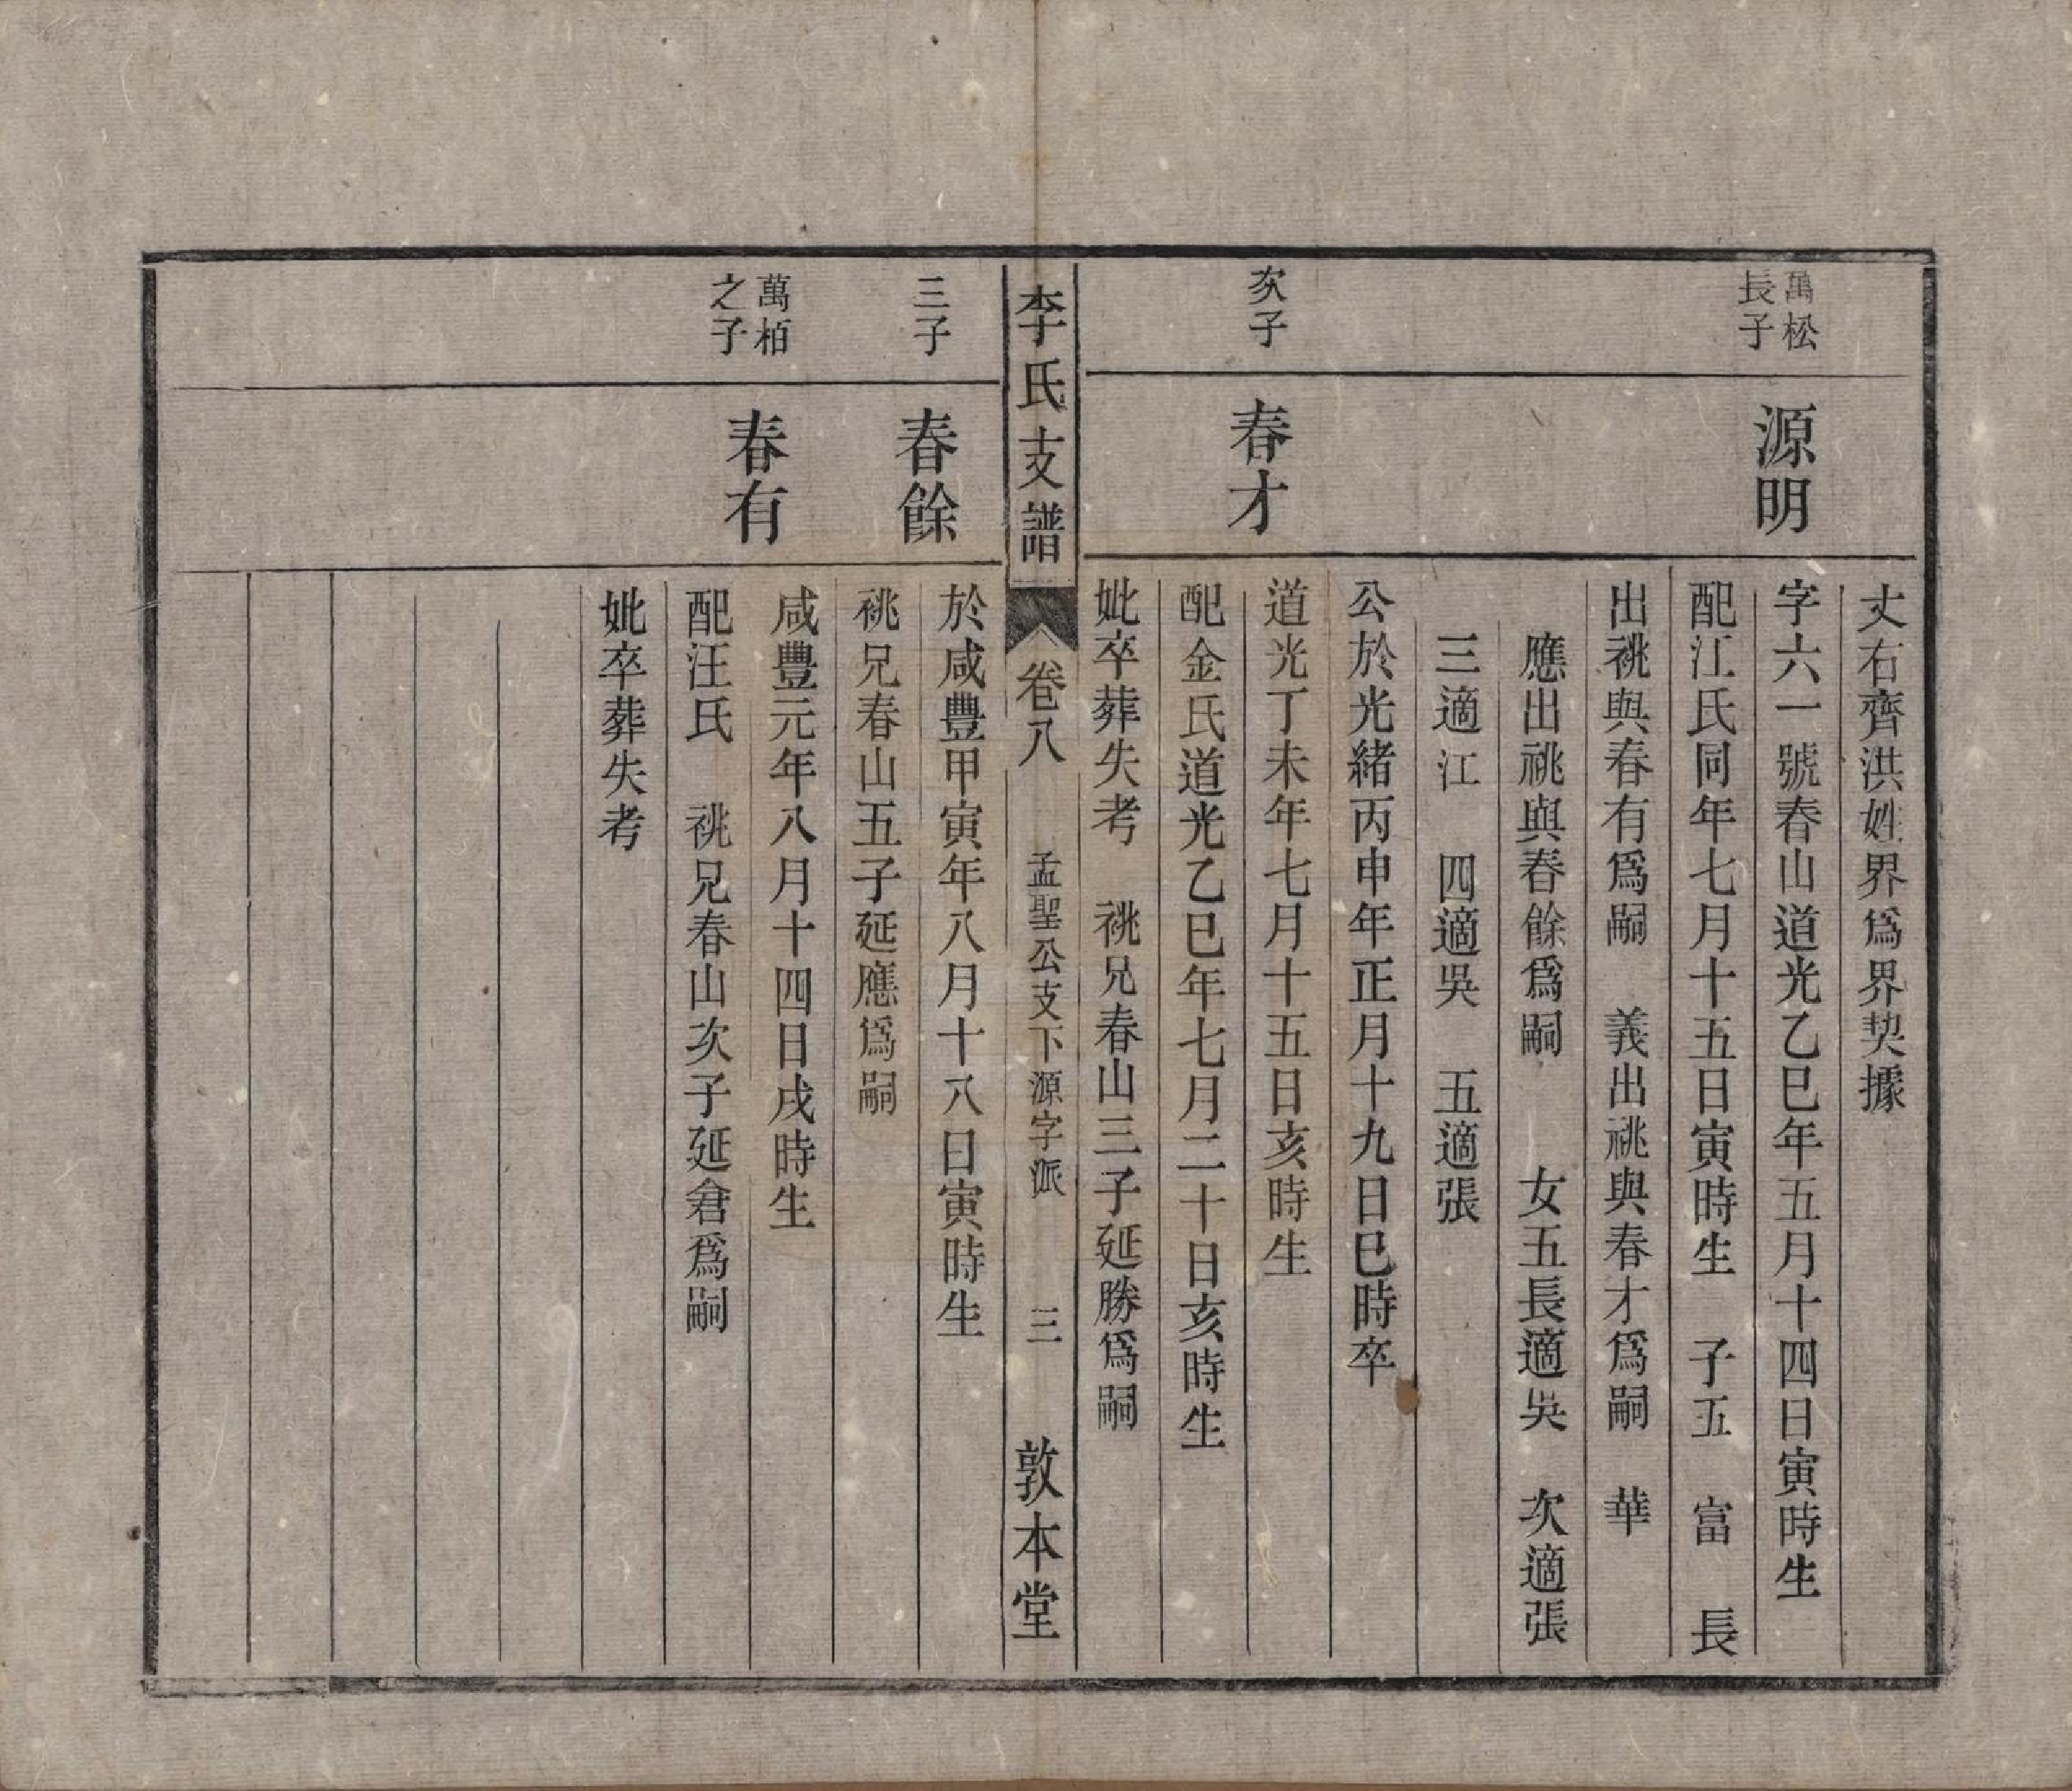 丈右齊洪姓界爲界契據
萬松
長子
源明
字六一號春山道光乙巳年五月十四日寅時生
配江氏同年七月十五日寅時生 子五 富 長
出祧與春有爲嗣 義出祧與春才爲嗣 華
應出祧與春餘爲嗣 女五長適吳 次適張
三適江 四適吳 五適張
公於光緒丙申年正月十九日巳時卒
次子
春才
道光丁未年七月十五日亥時生
配金氏道光乙巳年七月二十日亥時生
妣卒葬失考 祧兄春山三子延勝爲嗣
李氏支譜 卷八 孟聖公支下源字派 三 敦本堂
三子
春餘
於咸豐甲寅年八月十八日寅時生
祧兄春山五子延應爲嗣
萬栢
之子
春有
咸豐元年八月十四日戌時生
配汪氏 祧兄春山次子延倉爲嗣
妣卒葬失考